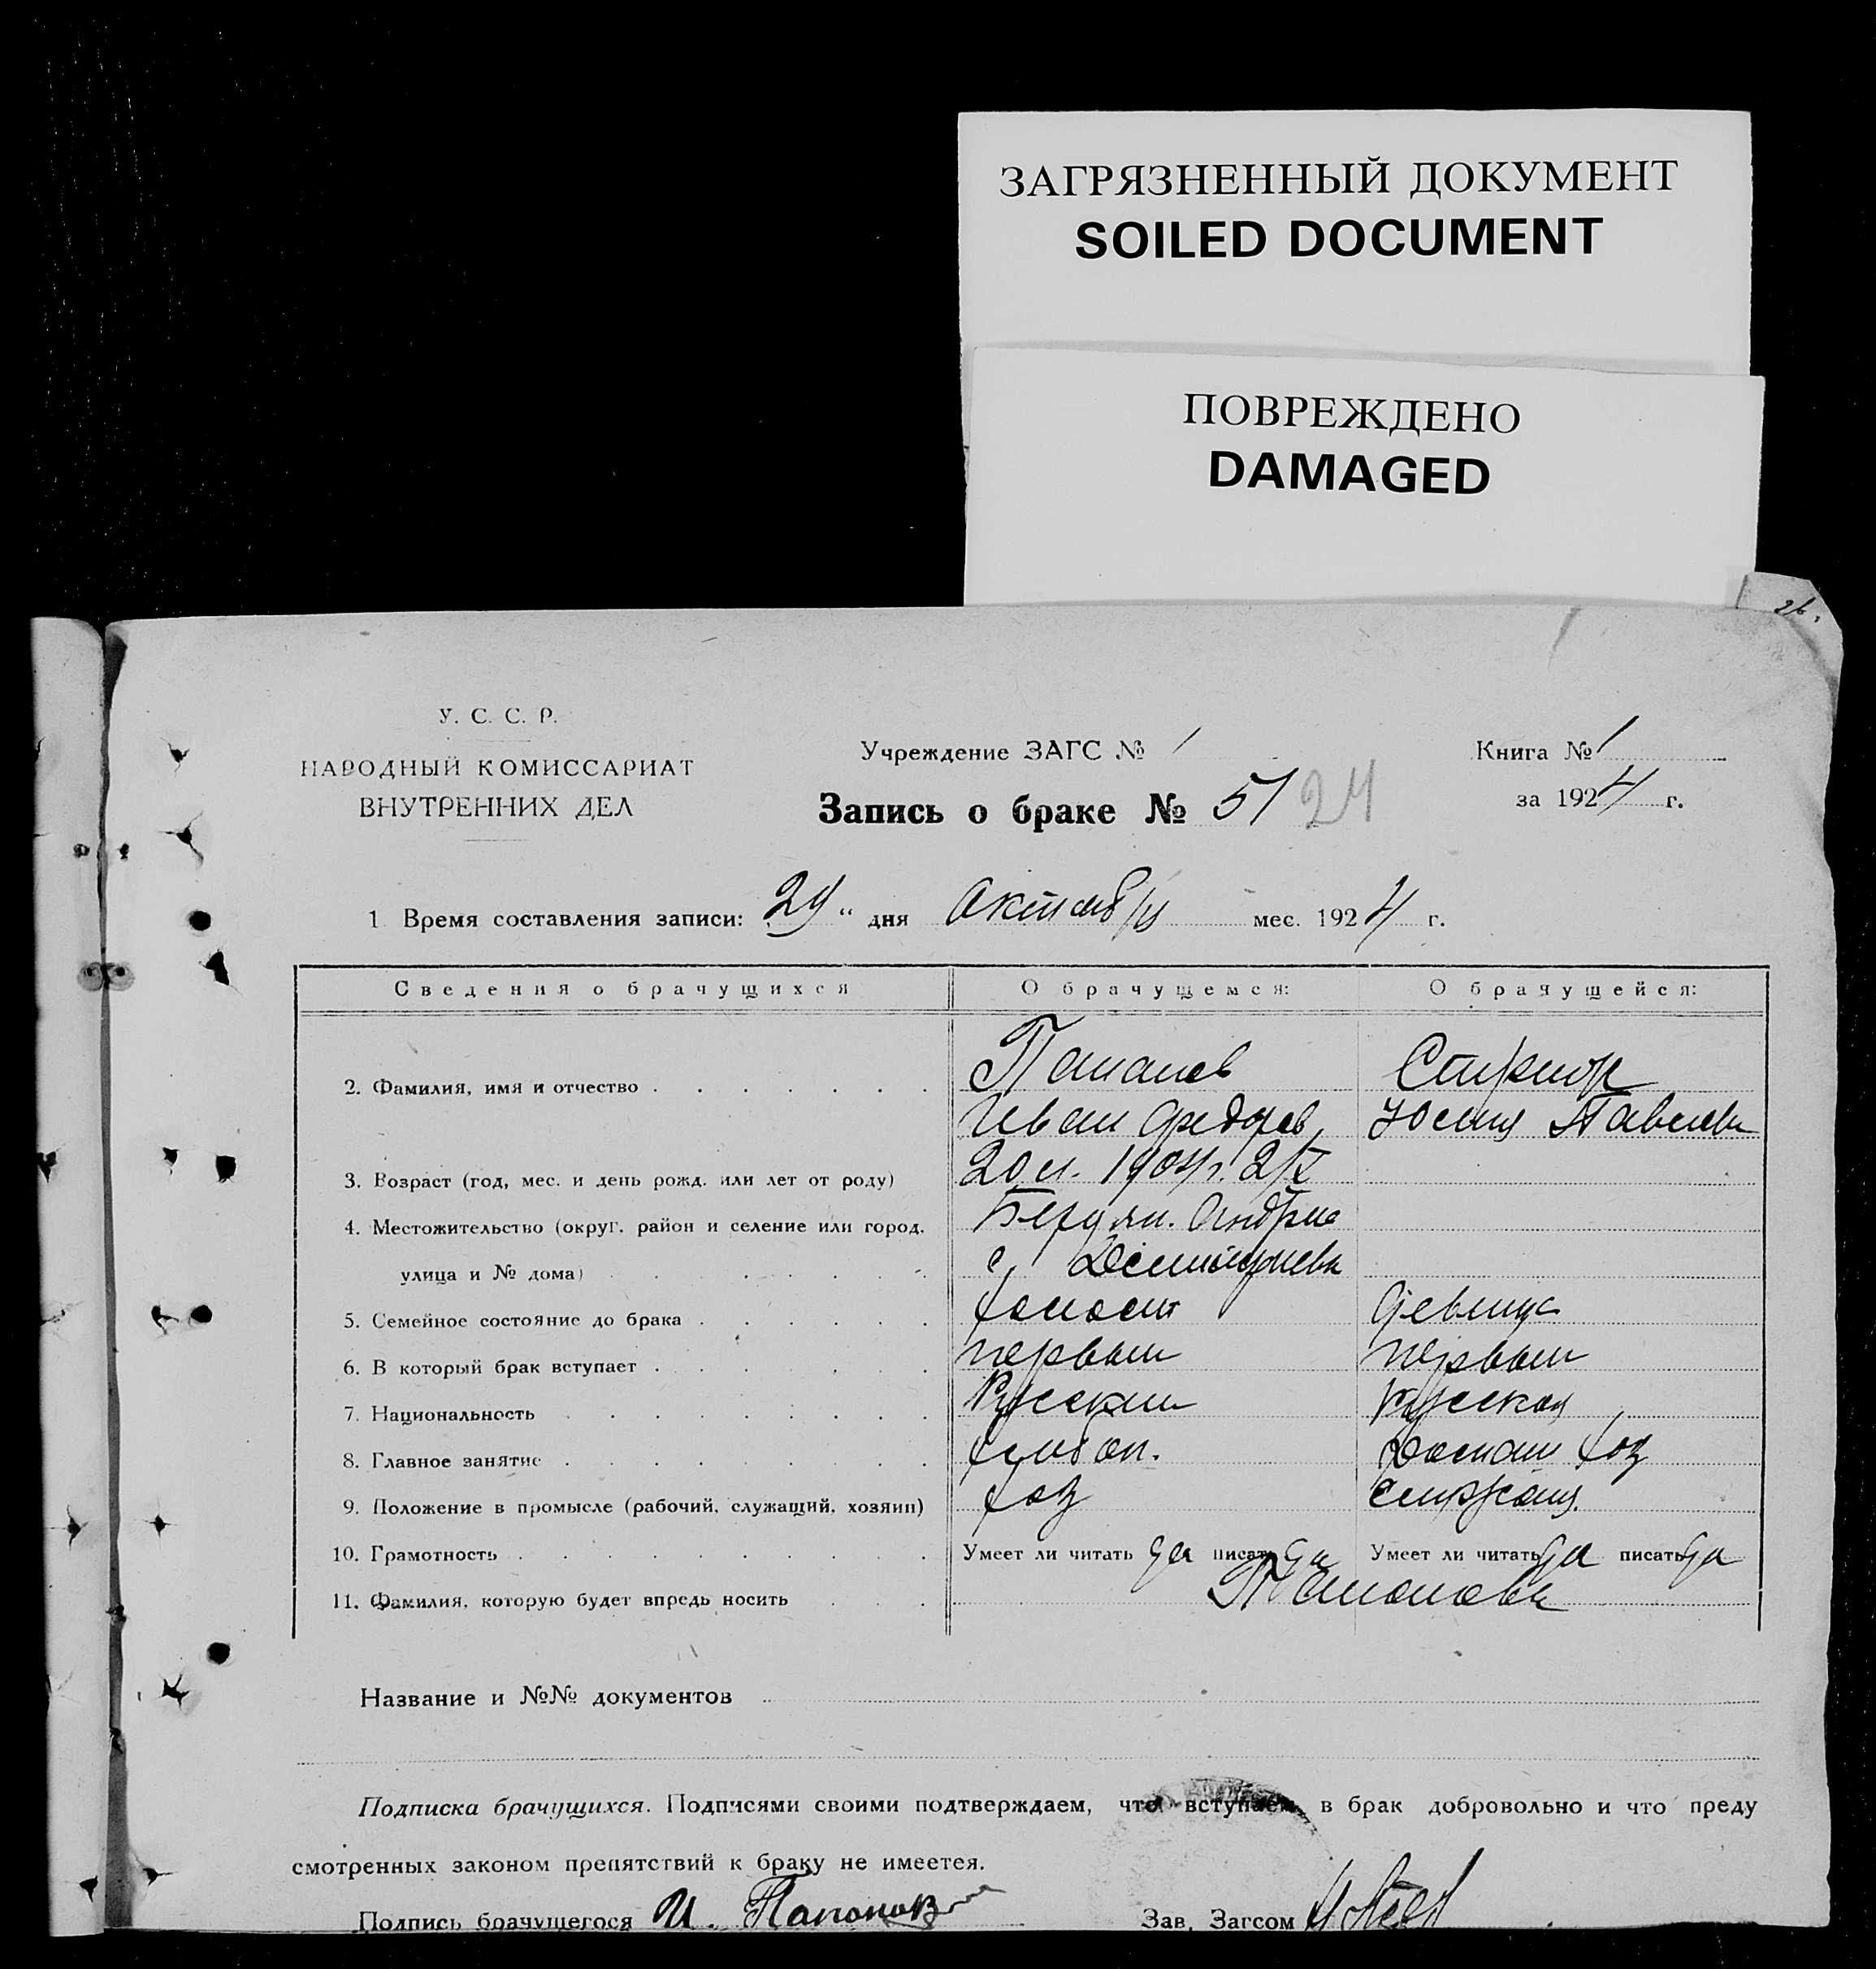 ЗАГРЯЗНЕННЫЙ ДОКУМЕНТ
SOILED DOCUMENT
ПОВРЕЖДЕНО
DAMAGED
26.
У. С. С. Р.
НАРОДНЫЙ КОМИССАРИАТ
ВНУТРЕННИХ ДЕЛ
Учреждение ЗАГС № 1
Запись о браке № 51 24
Книга № 1
за 1924 г.
1 Время составления записи: 29 " дня Октября мес. 1924 г.
Сведения о брачущихся О брачущемся: О брачущейся:
2. Фамилия, имя и отчество Папанов
Иван Федоров Павлов
3. Возраст (год, мес. и день рожд. или лет от роду) 20 л. 1904 г. 2/X
4. Местожительство (округ, район и селение или город,
улица и № дома) с
5. Семейное состояние до брака холост девица
6. В который брак вступает первый первый
7. Национальность Русский русская
8. Главное занятие хлебоп. домаш хоз
9. Положение в промысле (рабочий, служащий, хозяин) хоз
10. Грамотность Умеет ли читать да писать да Умеет ли читать да писать да
11. Фамилия, которую будет впредь носить Папановы
Название и №№ документов
Подписка брачущихся. Подписями своими подтверждаем, что вступаем в брак добровольно и что преду
смотренных законом препятствий к браку не имеется.
Подпись брачущегося И. Папонов Зав. Загсом